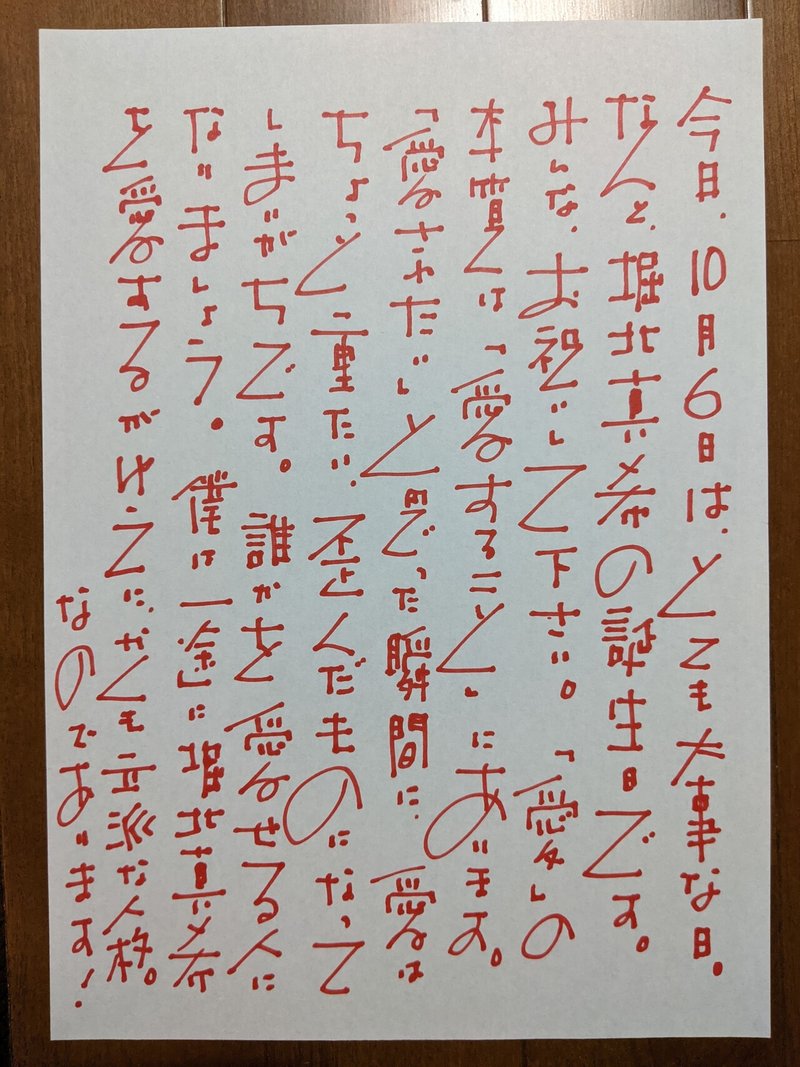 今日、10月6日は、とても大事な日。
なんと、堀北真希の誕生日です。
みんな、お祝いして下さい。「愛」の
本質とは「愛すること」にあります。
「愛されたい」と思った瞬間に、愛は
ちょっと重たい、歪んだものになって
しまいがちです。誰かを愛せる人に
なりましょう。僕は一途に堀北真希
を愛するがゆえに、かくも立派な人格。
なのであります！